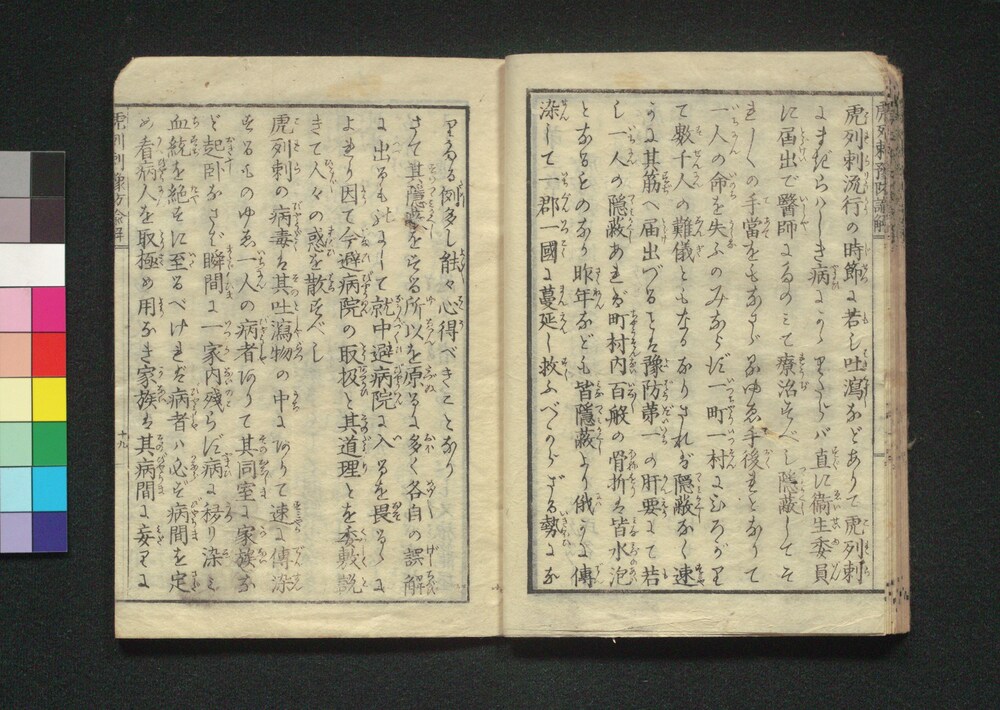 虎列刺豫防諭解
虎列刺流行の時節に若し吐瀉などありて虎列刺
にまぎらはしき病にかゝりたらバ直に衞生委員
に届出で醫師にみのミて療治すべし隠蔽してそ
れ〳〵の手當をもなさゞるゆゑ手後れとなりて
一人の命を失ふのみならず一町一村にひろがり
て數千人の難儀ともなるなりされば隠蔽なく速
かに其筋へ届出づることは豫防第一の肝要にて若
し一人の隠蔽あれば町村内百般の骨折も皆水泡
となるものなり昨年なども皆隠蔽より俄かに傳
染して一郡一國に蔓延し救ふべからざる勢にな
りたる例多し能々心得べきことなり
さて其隠蔽をする所以を原るに多く各自の誤解
に出るも此にして就中避病院に入るを畏るゝに
よれり因て今避病院の取扱と其道理とを委敷説
きて人々の惑を散ずべし
虎列刺の病毒は其吐瀉物の中にありて速に傳染
するものゆゑ一人の病者ありて其同室に家族な
ど起卧なさば瞬間に一家内残らず病に移り染ミ
血統を絶すに至るべけれバ病者ハ必ず病間を定
め看病人を取極め用なき家族は其病間に妄りに
虎列刺豫防諭解
十九